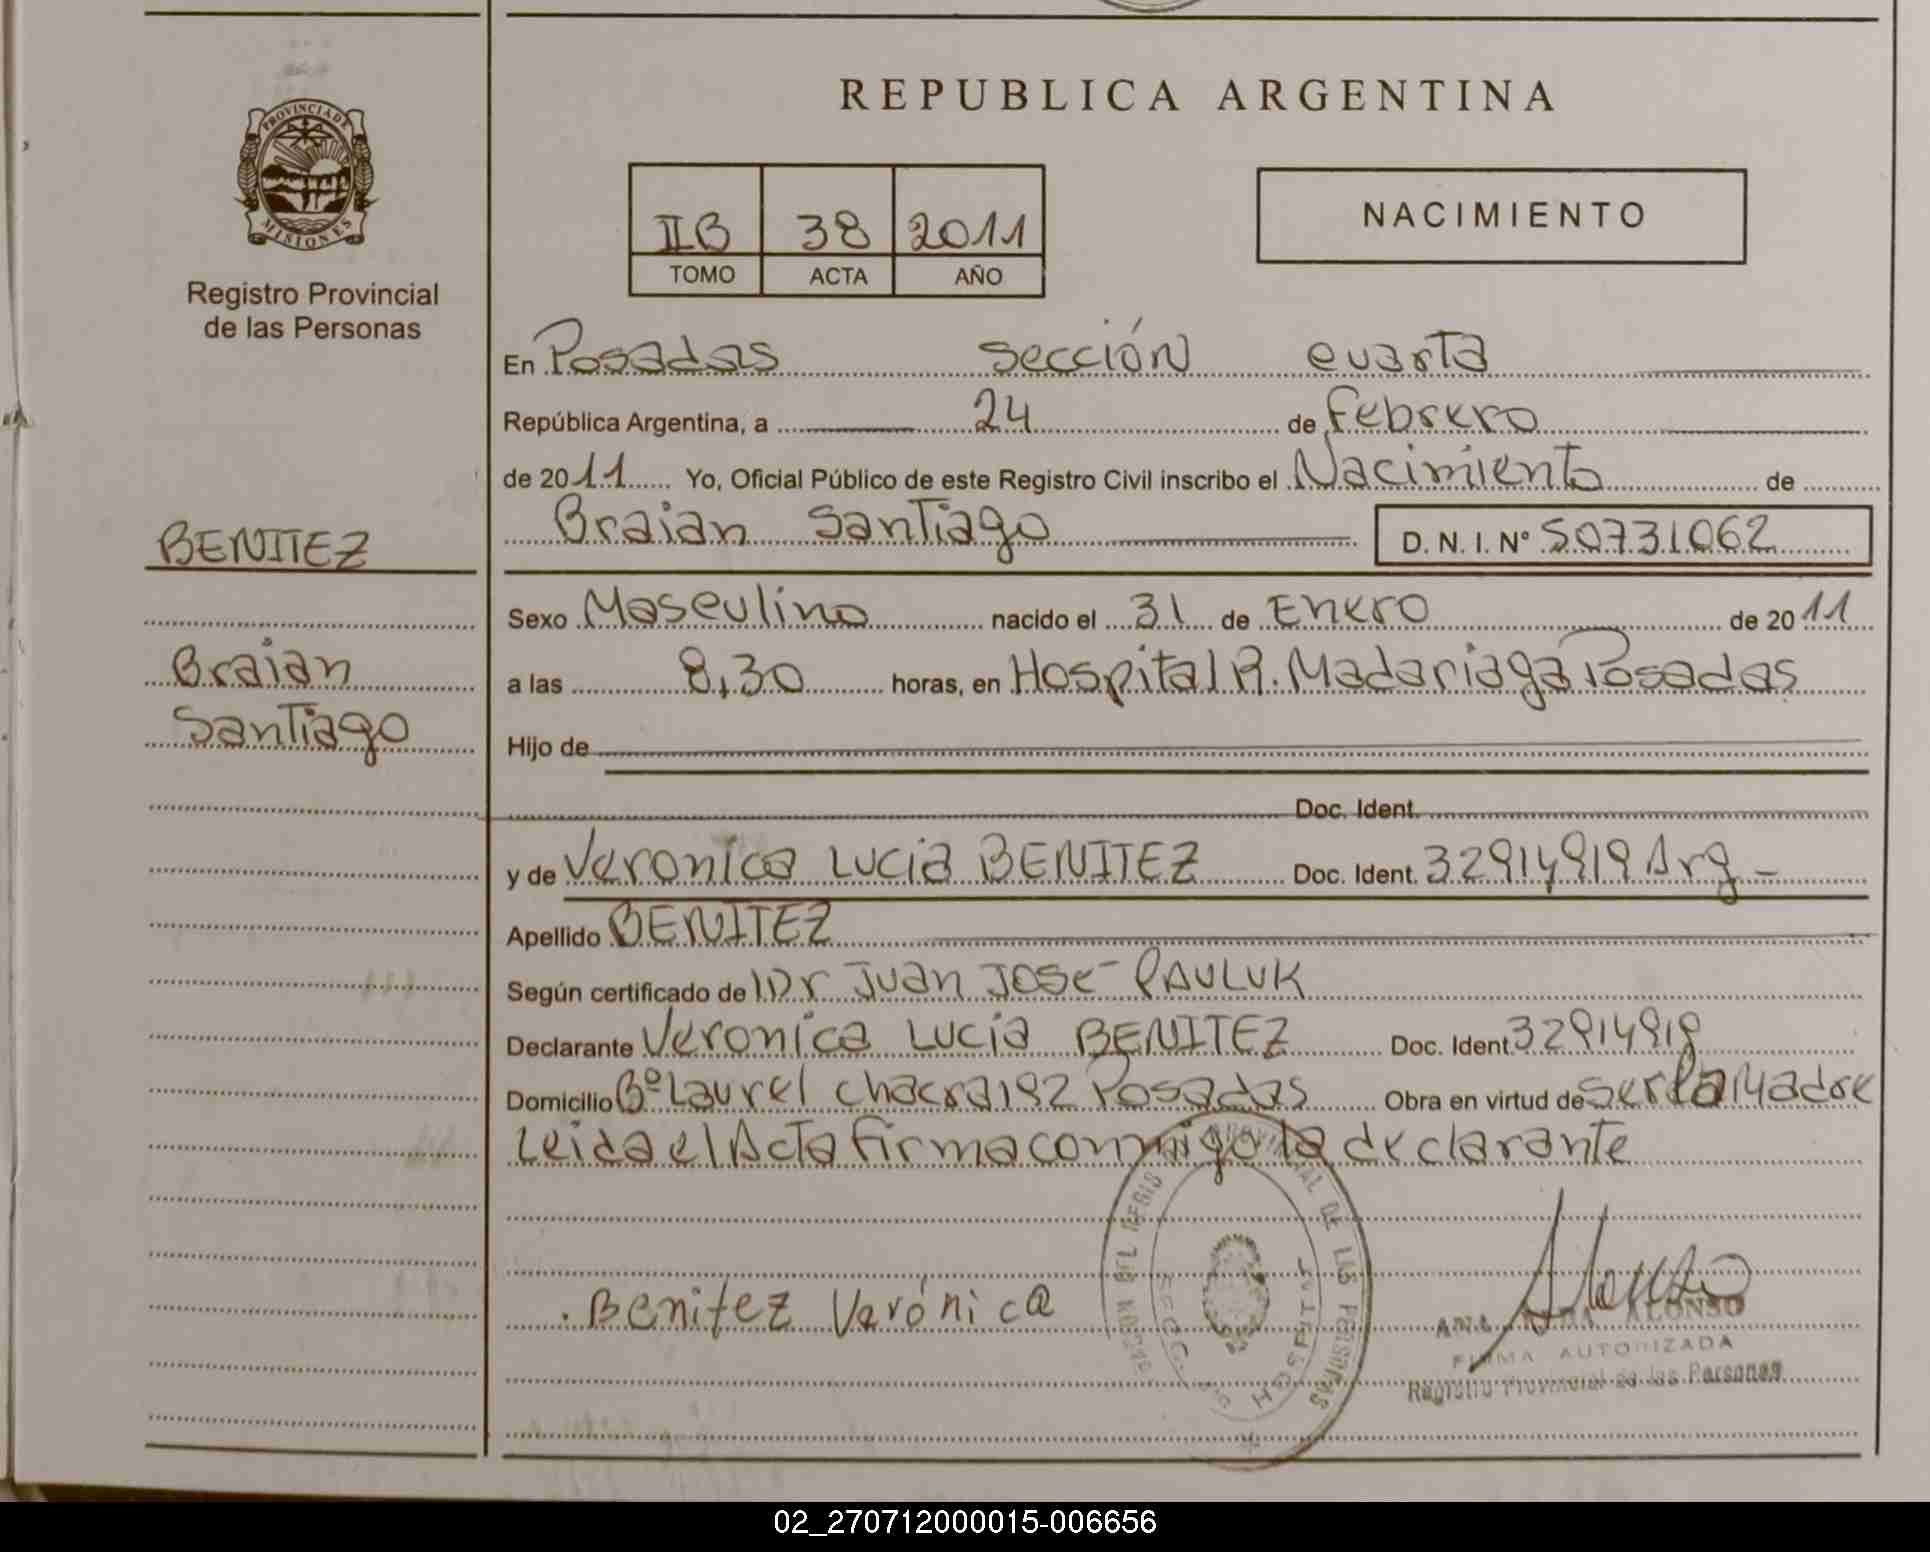 REPUBLICA ARGENTINA
PROVINCIA DE
MISIONES
Registro Provincial
de las Personas
IIB 38 2011
TOMO ACTA AÑO
NACIMIENTO
En Posadas sección cuarta
República Argentina, a 24 de Febrero
de 2011 Yo, Oficial Público de este Registro Civil inscribo el Nacimiento de
Braian Santiago D. N. I. N° 50731062
BENITEZ
Braian
Santiago
Sexo Masculino nacido el 31 de Enero de 2011
a las 8,30 horas, en Hospital R. Madariaga Posadas
Hijo de
Doc. Ident.
y de Veronica Lucia BENITEZ Doc. Ident. 32914919 Arg -
Apellido BENITEZ
Según certificado de Dr Juan José PAULUK
Declarante Veronica Lucia BENITEZ Doc. Ident 32914919
Domicilio Bº Laurel chacra 192 Posadas Obra en virtud de ser la Madre
Leida el Acta firma conmigo la declarante
Benitez Verónica
ALONSO
FIRMA AUTORIZADA
Registro Provincial de las Personas
02_270712000015-006656